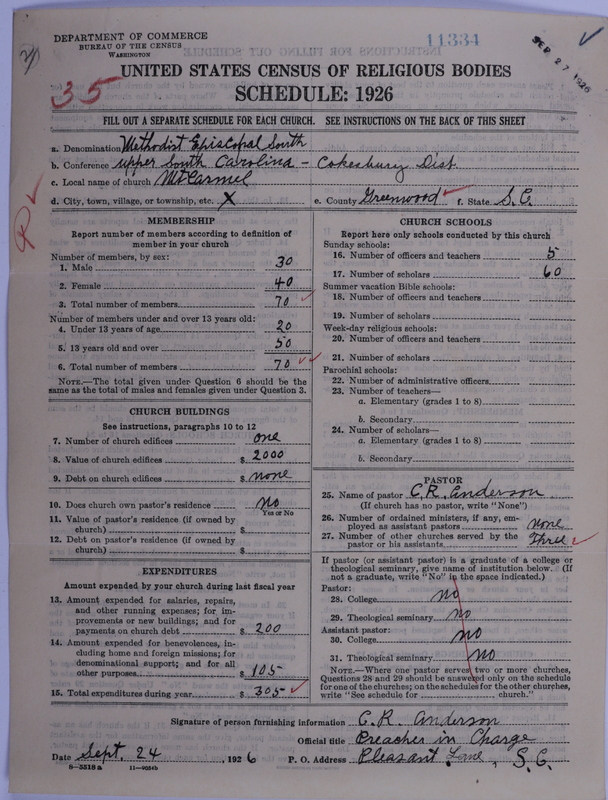 DEPARTMENT OF COMMERCE
BUREAU OF THE CENSUS
WASHINGTON
11334
SEP 27 1926
35
UNITED STATES CENSUS OF RELIGIOUS BODIES
SCHEDULE: 1926
FILL OUT A SEPARATE SCHEDULE FOR EACH CHURCH. SEE INSTRUCTIONS ON THE BACK OF THIS SHEET
a. Denomination Methodist Episcopal South
b. Conference upper South Carolina - Cokesbury Dist
c. Local name of church Mt Carmel
d. City, town, village, or township, etc. X e. County Greenwood f. State S.C.
MEMBERSHIP
Report number of members according to definition of
member in your church
Number of members, by sex:
1. Male 30
2. Female 40
3. Total number of members 70
Number of members under and over 13 years old:
4. Under 13 years of age 20
5. 13 years old and over 50
6. Total number of members 70
NOTE.—The total given under Question 6 should be the
same as the total of males and females given under Question 3.
CHURCH BUILDINGS
See instructions, paragraphs 10 to 12
7. Number of church edifices one
8. Value of church edifices $ 2000
9. Debt on church edifices $ none
10. Does church own pastor's residence no
Yes or No
11. Value of pastor's residence (if owned by
church) $
12. Debt on pastor's residence (if owned by
church) $
EXPENDITURES
Amount expended by your church during last fiscal year
13. Amount expended for salaries, repairs,
and other running expenses; for im-
provements or new buildings; and for
payments on church debt $ 200
14. Amount expended for benevolences, in-
cluding home and foreign missions; for
denominational support; and for all
other purposes $ 105
15. Total expenditures during year $ 305
CHURCH SCHOOLS
Report here only schools conducted by this church
Sunday schools:
16. Number of officers and teachers 5
17. Number of scholars 60
Summer vacation Bible schools:
18. Number of officers and teachers
19. Number of scholars
Week-day religious schools:
20. Number of officers and teachers
21. Number of scholars
Parochial schools:
22. Number of administrative officers
23. Number of teachers—
a. Elementary (grades 1 to 8)
b. Secondary
24. Number of scholars—
a. Elementary (grades 1 to 8)
b. Secondary
PASTOR
25. Name of pastor C. R. Anderson
(If church has no pastor, write "None")
26. Number of ordained ministers, if any, em-
ployed as assistant pastors none
27. Number of other churches served by the
pastor or his assistants Three
If pastor (or assistant pastor) is a graduate of a college or
theological seminary, give name of institution below. (If
not a graduate, write "No" in the space indicated.)
Pastor:
28. College no
29. Theological seminary no
Assistant pastor:
30. College no
31. Theological seminary no
NOTE.—Where one pastor served two or more churches,
Questions 28 and 29 should be answered only on the schedule
for one of the churches; on the schedules for the other churches,
write "See schedule for church."
Signature of person furnishing information C. R. Anderson
Official title Preacher in Charge
Date Sept. 24, 1926 P. O. Address Pleasant Lane, S.C.
8—5518a 11—9054b